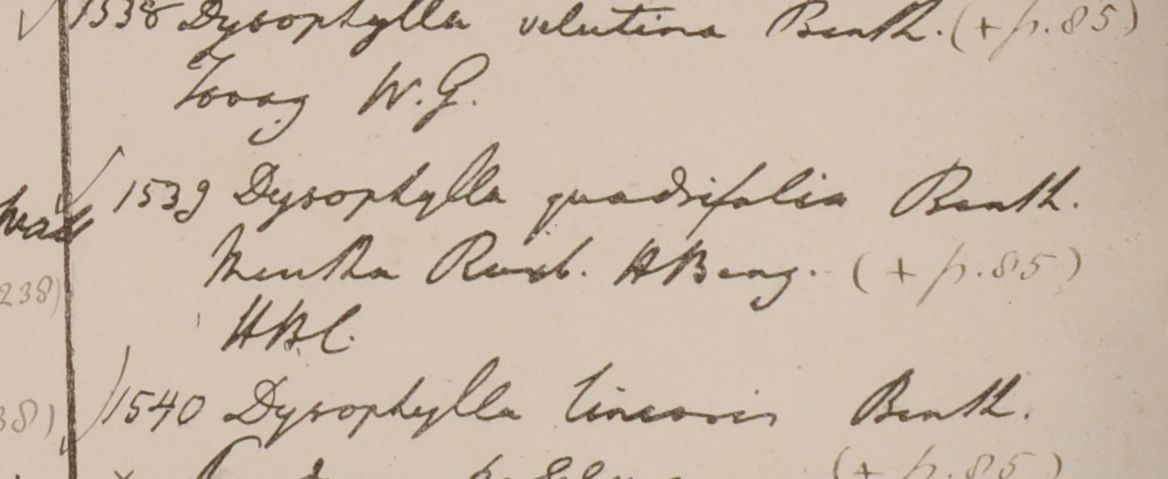 1538 Dysophylla velutina Benth. (+ p. 85)
Tovag W.G.
1539 Dysophylla quadrifolia Benth.
Mentha Roxb. HBeng. (+ p. 85)
238)
HBC.
1540 Dysophylla linearis Benth.
38)
(+ p. 85)